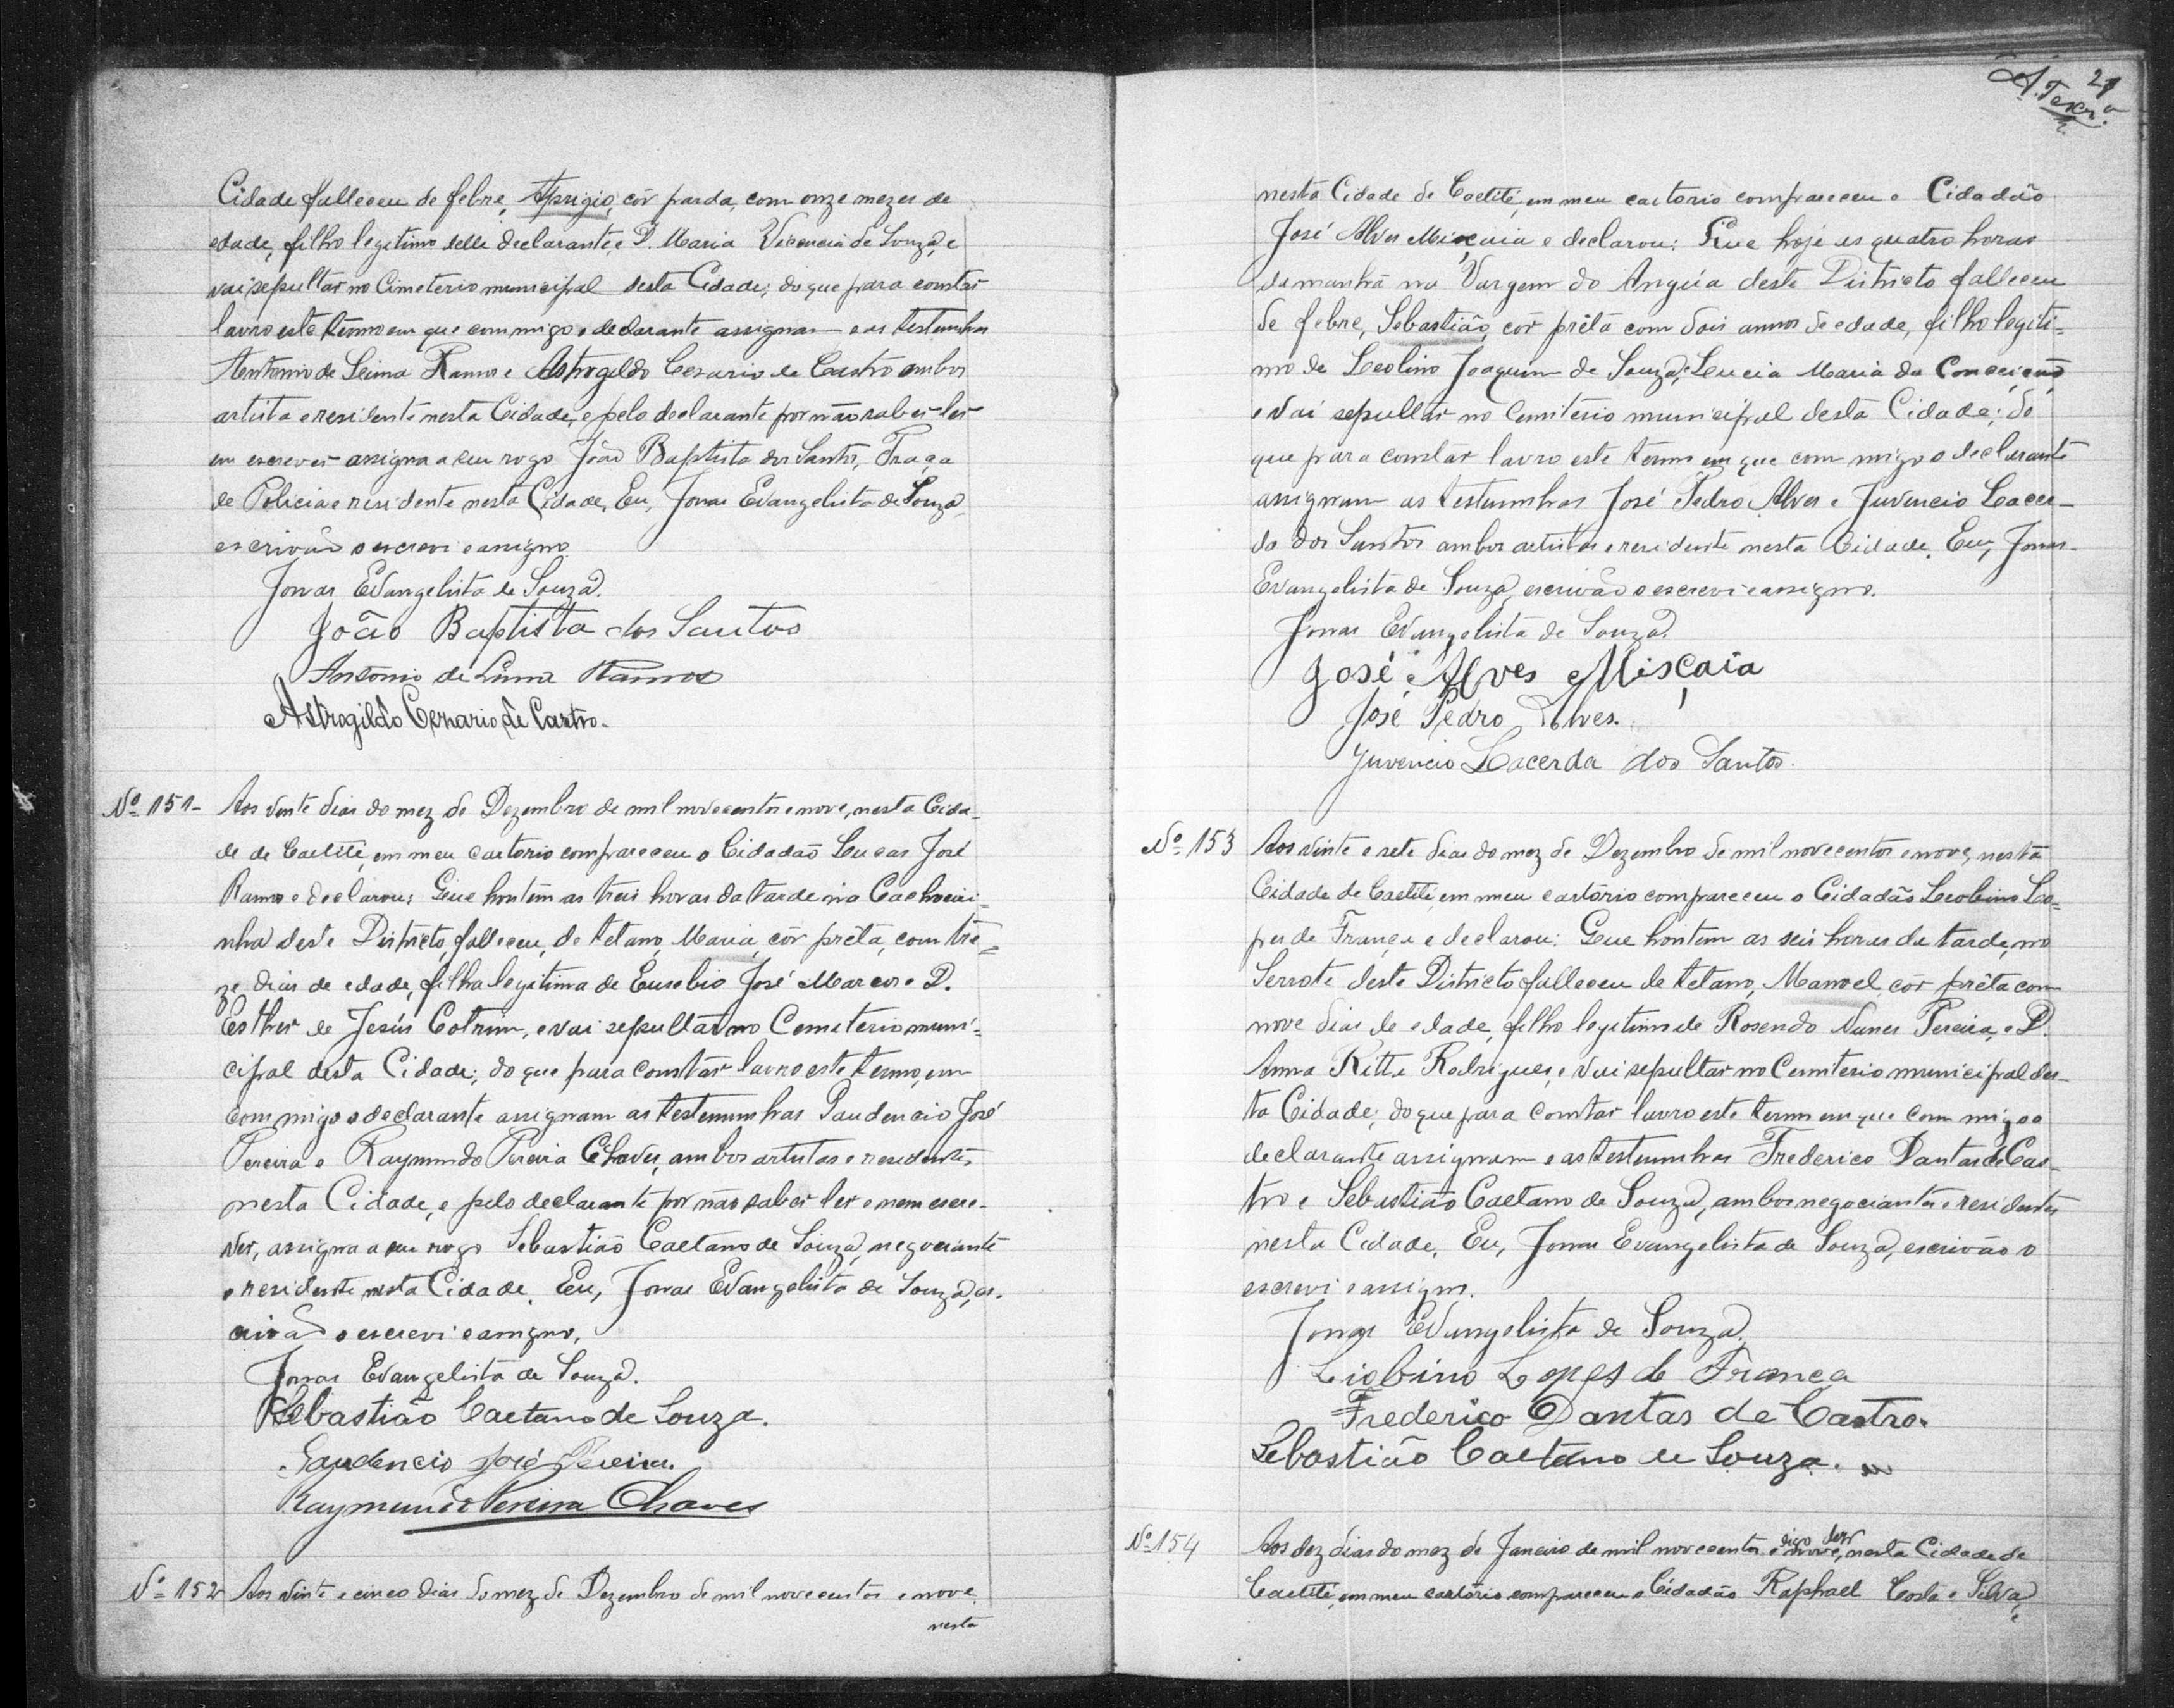 Cidade falleceu de febre, Aprigio, côr parda, com onze mezes de
edade, filho legitimo delle declarante, e D. Maria Vicencia de Souza, e
vai sepultar no Cimeterio municipal desta Cidade; do que para constar
lavro este termo em que commigo o declarante assignam e as testemunhas
Antonio de Leima Ramos e Astrogildo Cesario de Castro ambos
artista e residente nesta Cidade, e pelo declarante por não saber ler
em escrever assigna a seu rogo João Baptista dos Santos, Praça
de Policia e residente nesta Cidade, Eu, Jonas Evangelista de Souza,
escrivão o escrevi e assigno.
Jonas Evangelista de Souza.
João Baptista dos Santos
Antonio de Lima Ramos
Astrogildo Cesario de Castro.
Nº 151- Aos vinte dias do mez de Dezembro de mil novecentos e nove, nesta Cida-
de de Caetité, em meu cartorio compareceu o Cidadão Lucas José
Ramos e declarou: Que hontem as treis horas da tarde, na Cachoeiri-
nha deste Districto, falleceu, de tetano, Maria, côr prêta, com tre-
ze dias de edade, filha legitima de Eusebio José Marcos e D.
Esther de Jesús Cotrim, e vai sepultar no Cemeterio muni-
cipal desta Cidade; do que para constar lavro este termo, em
commigo o declarante assignam as testemunhas Gaudencio José
Pereira e Raymundo Pereira Chaves, ambos artistas e residentes
nesta Cidade, e pelo declarante por não saber ler e nem escre-
ver, assigna a seu rogo Sebastião Caetano de Souza, negociante
e residente nesta Cidade. Eu, Jonas Evangelista de Souza, es-
crivão o escrevi e assigno.
Jonas Evangelista de Souza.
Sebastião Caetano de Souza.
Gaudencio José Pereira.
Raymundo Pereira Chaves
Nº 152 Aos vinte e cinco dias do mez de Dezembro de mil novecentos e nove
nesta
21
nesta Cidade de Caetité, em meu cartorio compareceu o Cidadão
José Alves Misçaia e declarou: Que hoje as quatro horas
da manhã na Vargem do Angúa deste Districto falleceu
de febre, Sebastião, côr prêta com dois annos de edade, filho legiti-
mo de Leolino Joaquim de Souza, e Lucia Maria da Conceição
e vai sepultar no Cemitério municipal desta Cidade; do
que para constar lavro este termo em que com migo o declarante
assignam as testemunhas José Pedro Alves e Juvencio Lacer-
da dos Santos ambos artistas e residente nesta Cidade. Eu, Jonas
Evangelista de Souza, escrivão o escrevi e assigno.
Jonas Evangelista de Souza.
José Alves Misçaia
José Pedro Alves.
Juvencio Lacerda dos Santos.
Nº 153 Aos vinte e sete dias do mez de Dezembro de mil novecentos e nove, nesta
Cidade de Caetité, em meu cartório compareceu o Cidadão Leobino Lo-
pes de França e declarou: Que hontem as seis horas da tarde, no
Serrote deste Districto falleceu de tetano, Manoel, côr prêta com
nove dias de edade, filho legitimo de Rosendo Nunes Pereira, e D.
Anna Ritta Rodrigues, e vai sepultar no Cemiterio municipal des-
ta Cidade; do que para constar lavro este termo em que com migo o
declarante assignam e as testemunhas Frederico Dantas de Cas-
tro e Sebastião Caetano de Souza, ambos negociantes e residentes
nesta Cidade. Eu, Jonas Evangelista de Souza, escrivão o
escrevi e assigno.
Jonas Evangelista de Souza.
Liobino Lopes de França
Frederico Dantas de Castro.
Sebastião Caetano de Souza.
Nº 154 Aos dez dias do mez de Janeiro de mil novecentos e nove, digo dez, nesta Cidade de
Caetité, em meu cartório compareceu o Cidadão Raphael Costa e Silva, e